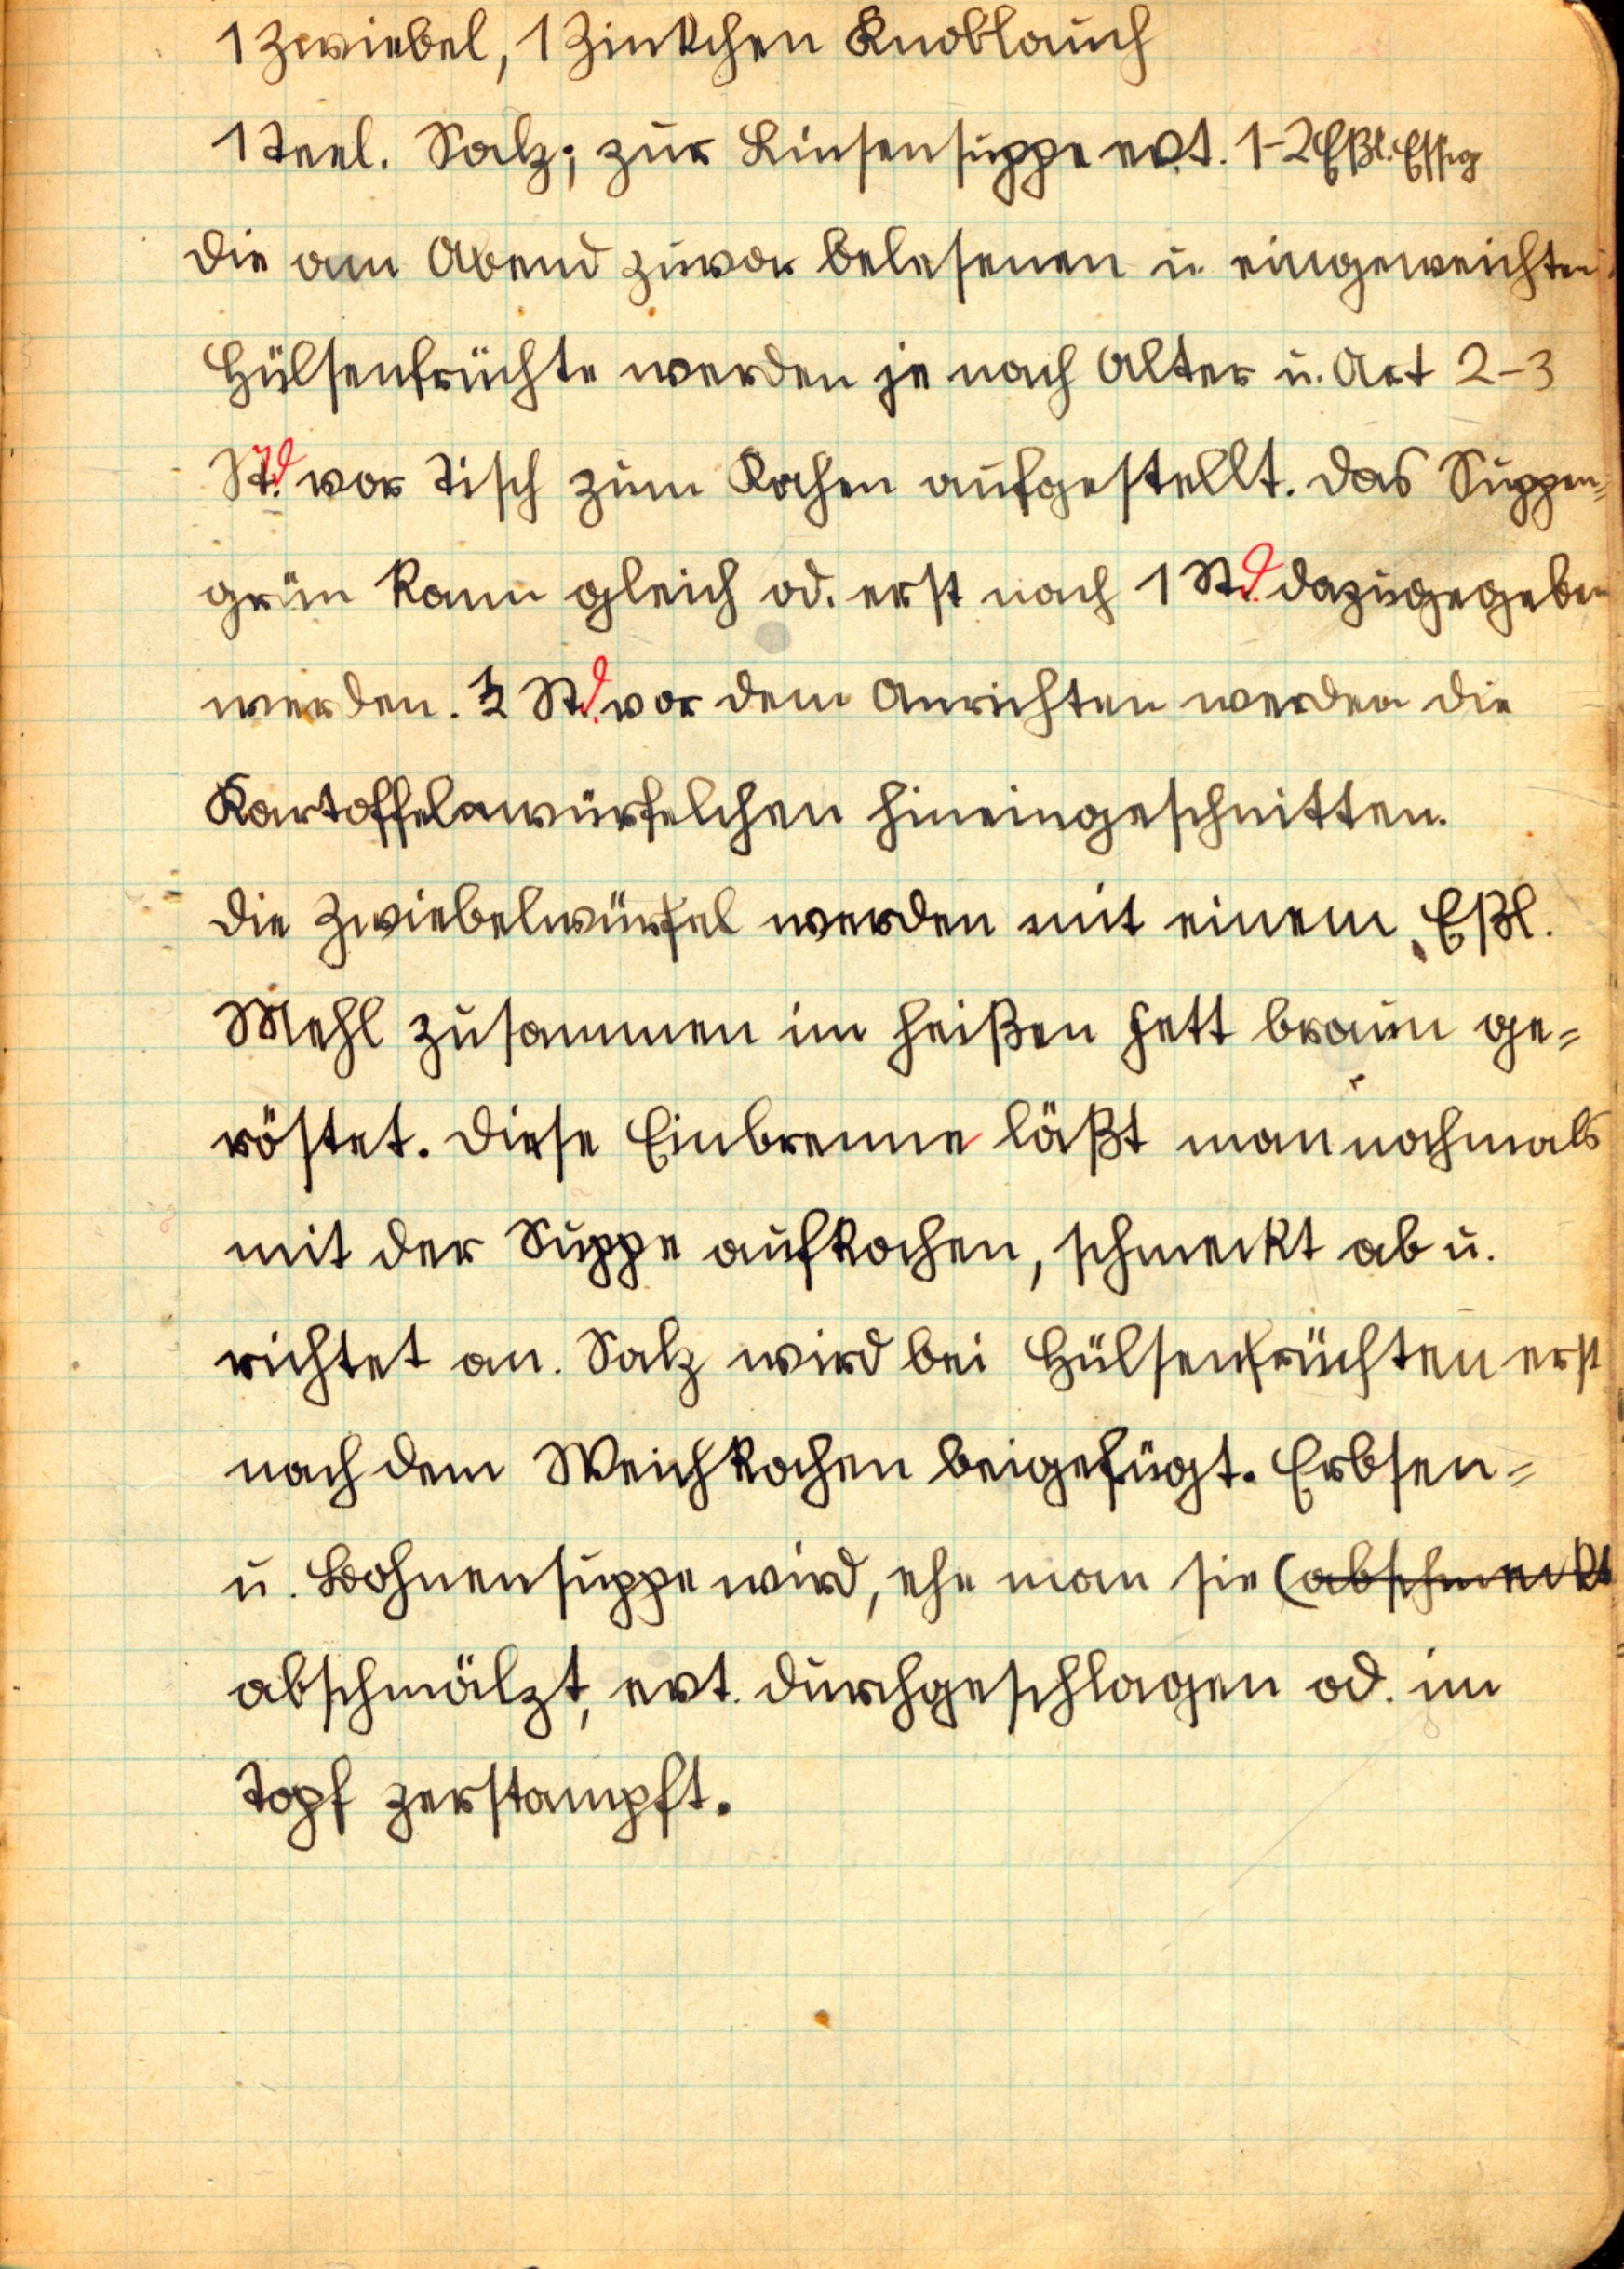 1 Zwiebel, 1 Zinkchen Knoblauch
1 Teel. Salz; zur Linsensuppe evt. 1-2 Eßl. Essig
Die am Abend zuvor belesenen u. eingeweichten
Hülsenfrüchte werden je nach Alter u. Art 2-3
Std. vor Tisch zum Kochen aufgestellt. Das Suppen-
grün kann gleich od. erst nach 1 Std. dazugegeben
werden. ½ Std. vor dem Anrichten werden die
Kartoffelnwürfelchen hineingeschnitten.
Die Zwiebelwürfel werden mit einem Eßl.
Mehl zusammen im heißen Fett braun ge-
röstet. Diese Einbrenne läßt man nochmals
mit der Suppe aufkochen, schmeckt ab u.
richtet an. Salz wird bei Hülsenfrüchten erst
nach dem Weichkochen beigefügt. Erbsen-
u. Bohnensuppe wird, ehe man sie (abschmeckt
abschmälzt, evt. durchgeschlagen od. im
Topf zerstampft.